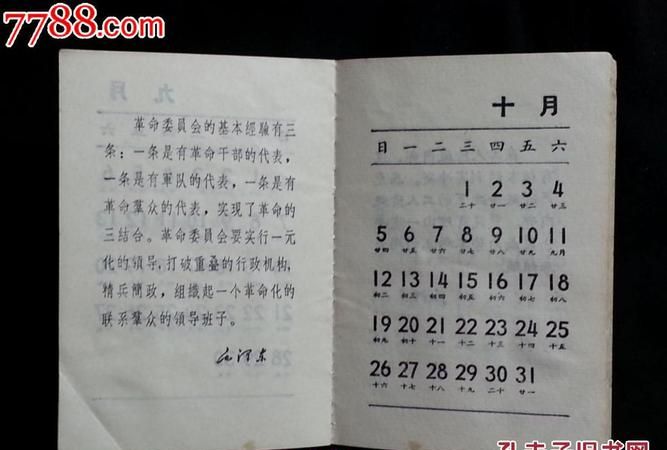 7788.com
九 月
革命委員会的基本經驗有三
条：一条是有革命干部的代表，
一条是有軍队的代表，一条是有
革命羣众的代表，实現了革命的
三结合。革命委員会要实行一元
化的领导，打破重叠的行政机构，
精兵簡政，组織起一个革命化的
联系羣众的领导班子。
毛泽东
十月
日 一 二 三 四 五 六
1 2 3 4
二十 廿一 廿二 廿三
5 6 7 8 9 10 11
廿四 廿五 廿六 廿七 廿八 廿九 九月
12 13 14 15 16 17 18
初二 初三 初四 初五 初六 初七 初八
19 20 21 22 23 24 25
初九 初十 十一 十二 十三 十四 十五
26 27 28 29 30 31
十六 十七 十八 十九 二十 廿一
孔夫子旧书网